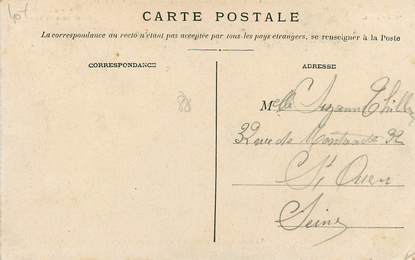 CARTE POSTALE
La correspondance au recto n'étant pas acceptée par tous les pays étrangers, se renseigner à la Poste
CORRESPONDANCE
ADRESSE
88
Melle Suzanne
32 rue de 32
St Ouen
Seine